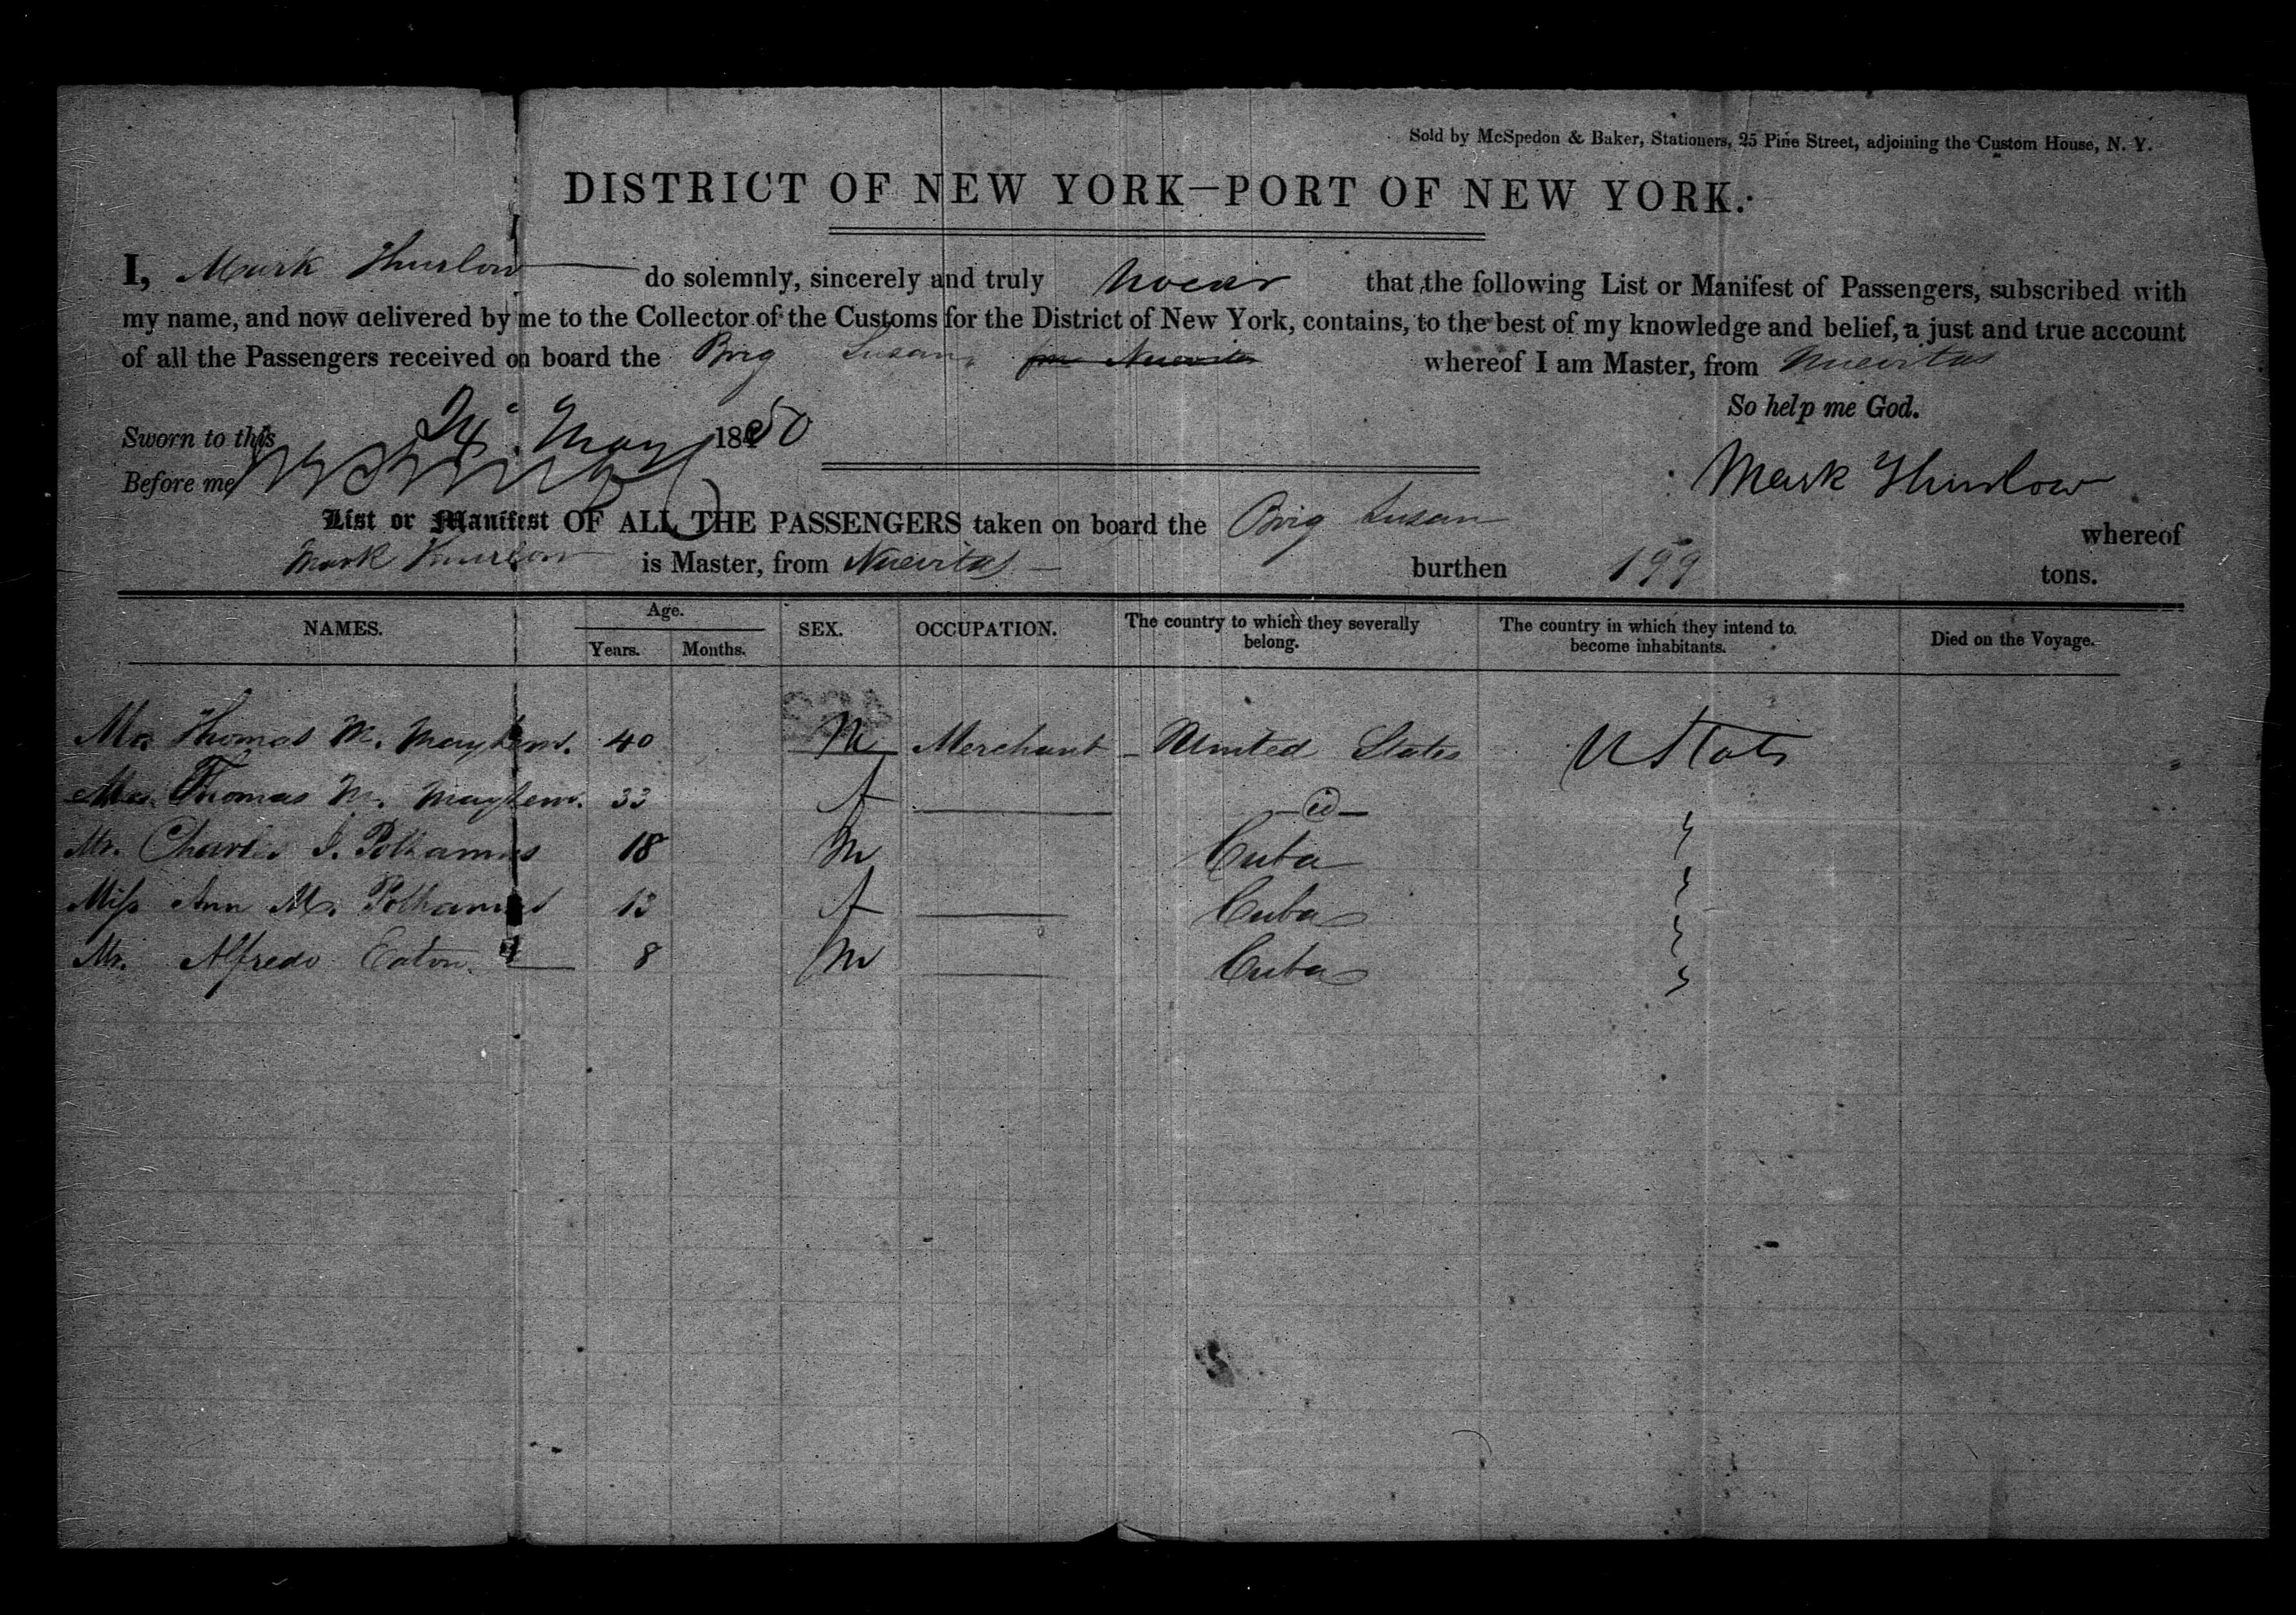 Sold by McSpedon & Baker, Stationers, 25 Pine Street, adjoining the Custom House, N. Y.
DISTRICT OF NEW YORK—PORT OF NEW YORK.
I, Mark Thurlow do solemnly, sincerely and truly swear that the following List or Manifest of Passengers, subscribed with
my name, and now delivered by me to the Collector of the Customs for the District of New York, contains, to the best of my knowledge and belief, a just and true account
of all the Passengers received on board the Brig Susan from Nuevitas whereof I am Master, from Nuevitas
So help me God.
Sworn to this 24 May 1850
Before me
Mark Thurlow
List or Manifest OF ALL THE PASSENGERS taken on board the Brig Susan whereof
Mark Thurlow is Master, from Nuevitas burthen 199 tons.
NAMES. Age. Years. Months. SEX. OCCUPATION. The country to which they severally belong. The country in which they intend to become inhabitants. Died on the Voyage.
Mr. Thomas M. Mayhew. 40 M Merchant United States U States
Mrs. Thomas M. Mayhew. 33 f id
Mr. Charles J. Polhamus 18 M Cuba
Miss Ann M. Polhamus 13 f Cuba
Mr. Alfredo Eaton. 8 M Cuba